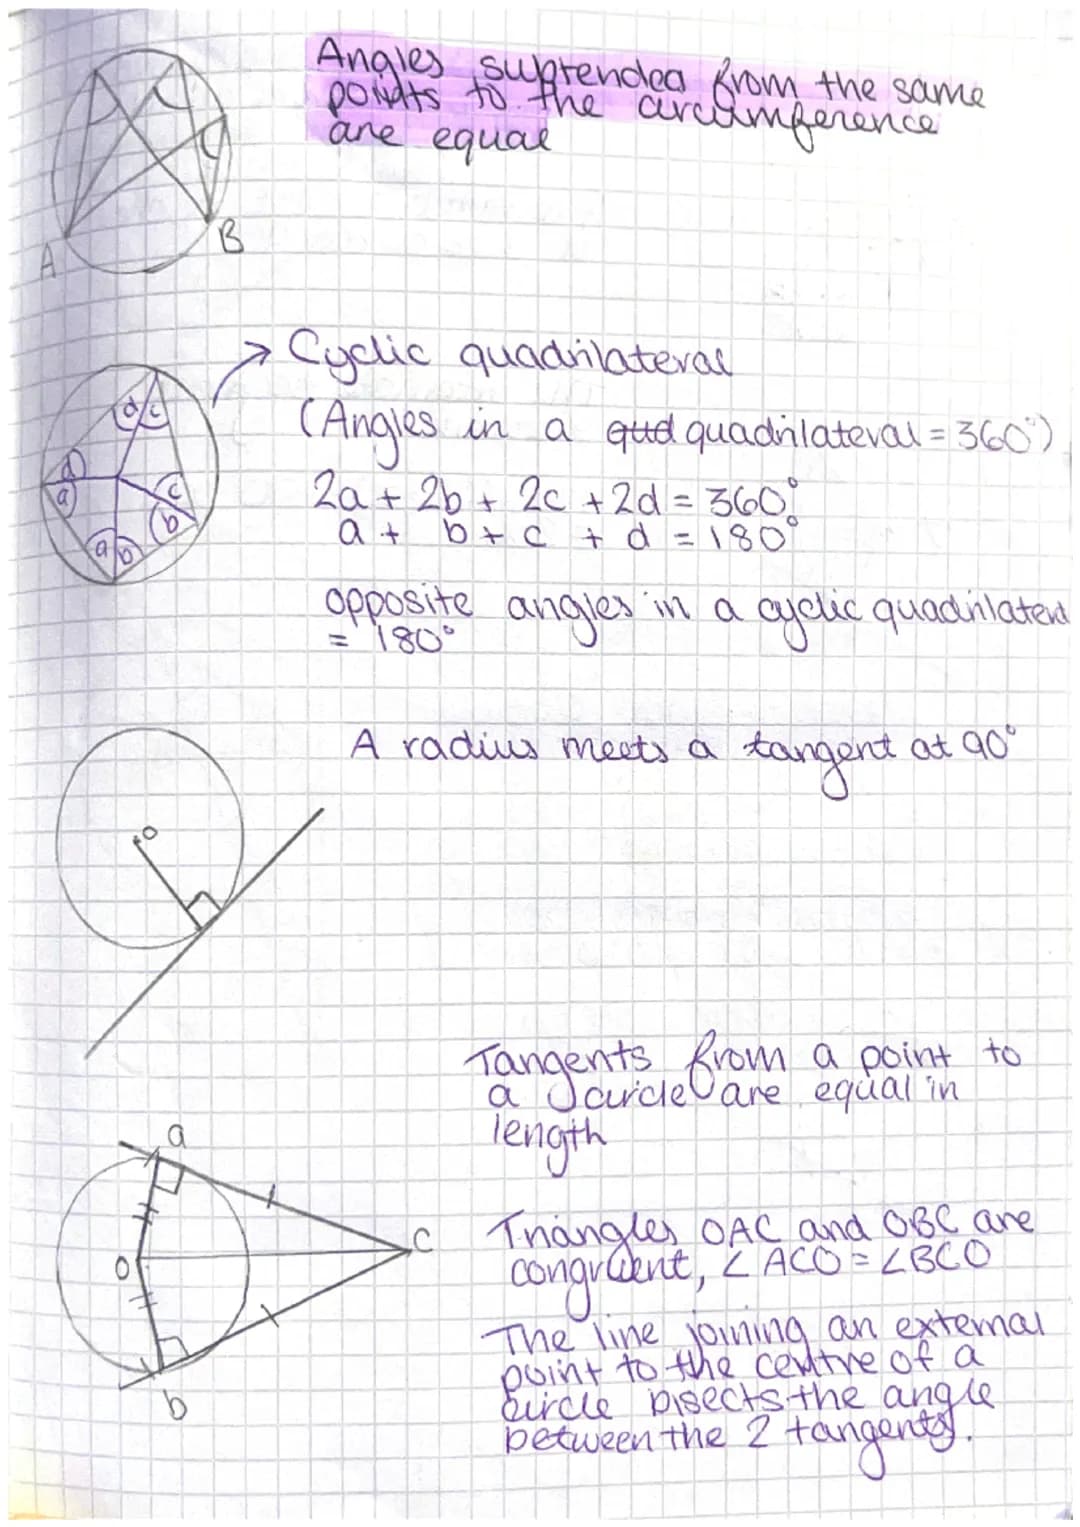 Angles subtended from the same
points to the circumference
are equal
A
B
→ Cyclic quadrilateral
(Angles in a qud quadrilateral = 360°)
d c
d
a
c
b
a b
2a + 2b + 2c + 2d = 360°
a + b + c + d = 180°
opposite angles in a cyclic quadrilateral
= 180°
A radius meets a tangent at 90°
o
Tangents from a point to
a circle are equal in
length
a
O
C
b
Triangles OAC and OBC are
congruent, ∠ACO = ∠BCO
The line joining an external
point to the centre of a
circle bisects the angle
between the 2 tangents.